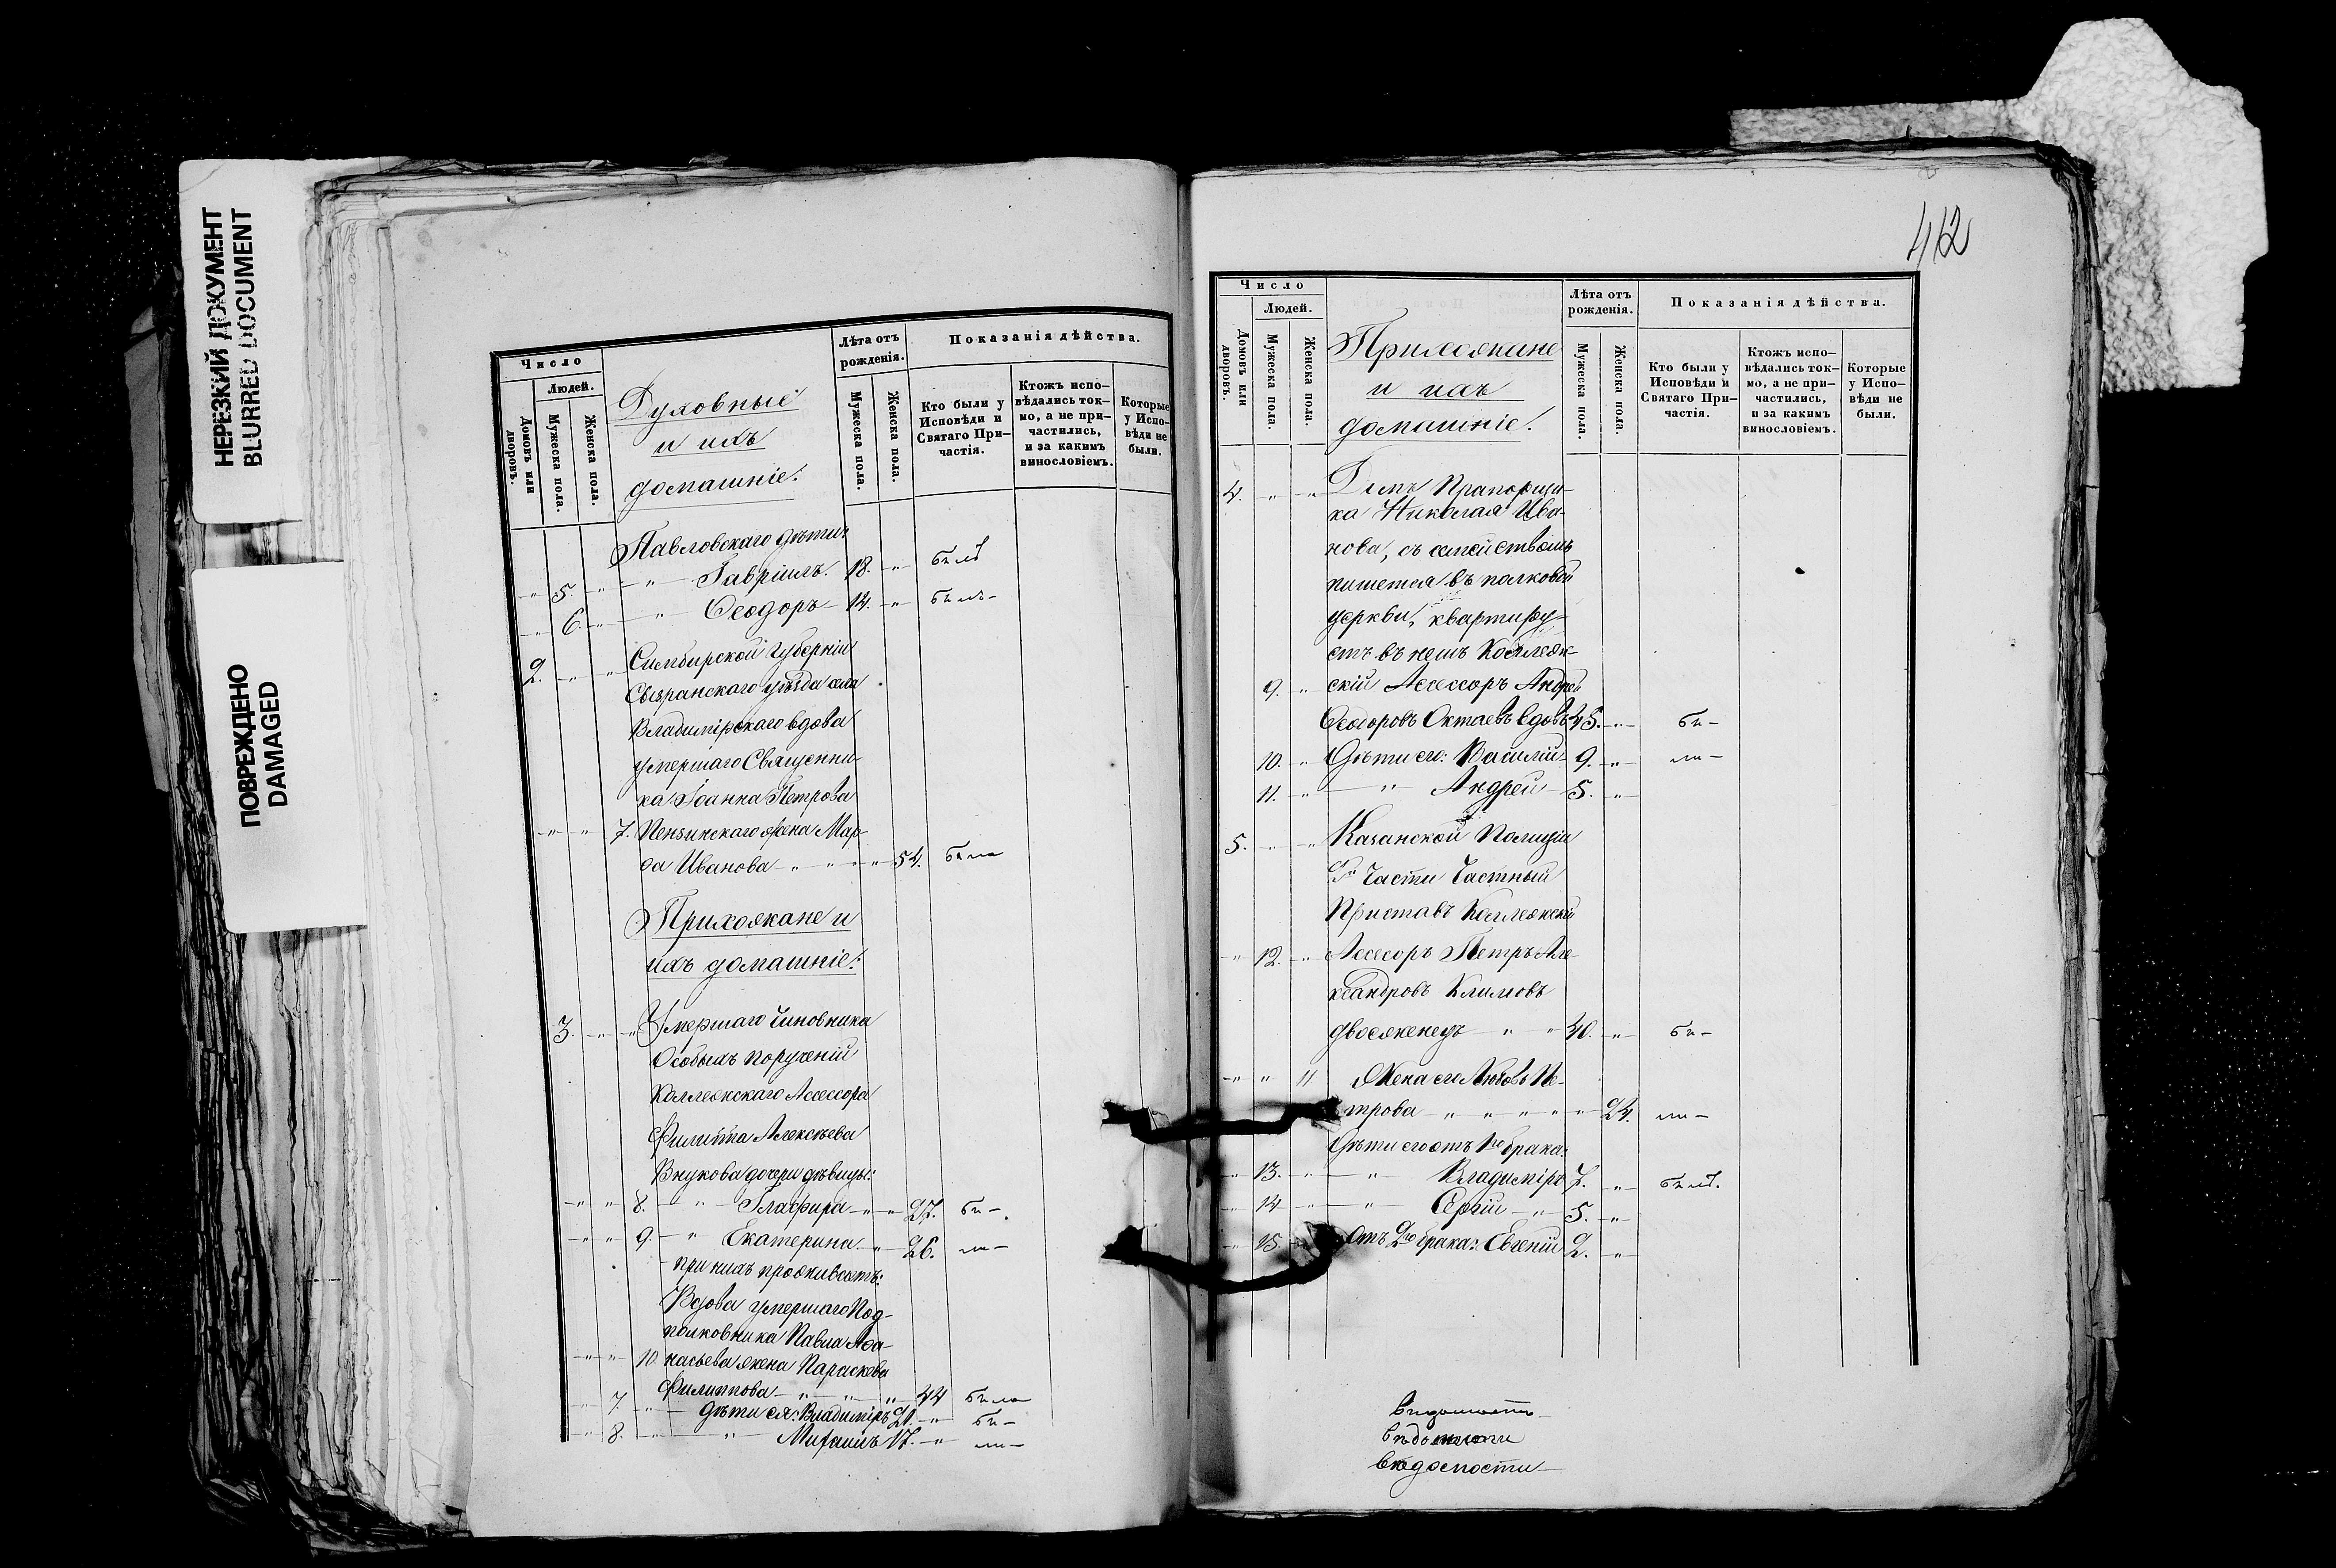 НЕРЕЗКИЙ ДОКУМЕНТ
BLURRED DOCUMENT
ПОВРЕЖДЕНО
DAMAGED
Число
Людей.
Домовъ или дворовъ.
Мужеска пола.
Женска пола.
Духовные
и ихъ
домашніе.
Лѣта отъ рожденія.
Мужеска пола.
Женска пола.
Показанія дѣйства.
Кто были у Исповѣди и Святаго При-
частія.
Ктожъ испо-
вѣдались ток-
мо, а не при-
частились,
и за какимъ
винословіемъ.
Которые
у Испо-
вѣди не
были.
Павловскаго дѣти:
5. Гавріилъ. 18. былъ
6. Ѳеодоръ 14. былъ
2. Симбирской Губерніи
Сызранскаго уѣзда села
Владимірскаго вдова
умершаго Священни-
ка Іоанна Петрова
7. Пензинскаго жена Мар-
ѳа Иванова 54. была
Прихожане и
ихъ домашніе:
3. Умершаго Чиновника
Особыхъ порученій
Коллежскаго Ассессора
Филиппа Алексѣева
Внукова дочери дѣвицы:
8. Глафира 27. бы-
9. Екатерина 26. ли-
при нихъ проживаетъ:
Вдова умершаго Под-
полковника Павла Аѳа-
10. насьева жена Параскева
Филиппова 44 была
7. дѣти ея: Владиміръ 21. бы-
8. Михаилъ 17. ли-
412
Число
Людей.
Домовъ или дворовъ.
Мужеска пола.
Женска пола.
Прихожане
и ихъ
домашніе.
Лѣта отъ рожденія.
Мужеска пола.
Женска пола.
Показанія дѣйства.
Кто были у
Исповѣди и
Святаго При-
частія.
Ктожъ испо-
вѣдались ток-
мо, а не при-
частились,
и за какимъ
винословіемъ.
Которые
у Испо-
вѣди не
были.
4. Домъ Прапорщи-
ка Николая Ива-
нова, съ семействомъ
пишется въ полковой
церкви, квартиру-
етъ въ немъ Коллеж-
9. скій Ассессоръ Андрей
Ѳеодоровъ Октаевъ вдовъ 45. бы-
10. Дѣти его: Василій 9. ли-
11. Андрей 5.
5. Казанской Полиціи
Части Частный
Приставъ Коллежскій
12. Ассесоръ Петръ Але-
ксандровъ Климовъ
двоеженецъ 40. бы-
11 Жена его Любовь Пе-
трова 24. ли-
Дѣти его отъ 1го брака:
13. Владиміръ 7. былъ.
14 Сергій 5.
15. Отъ 2го брака: Евгеній 2.
вѣдомости
вѣдомости